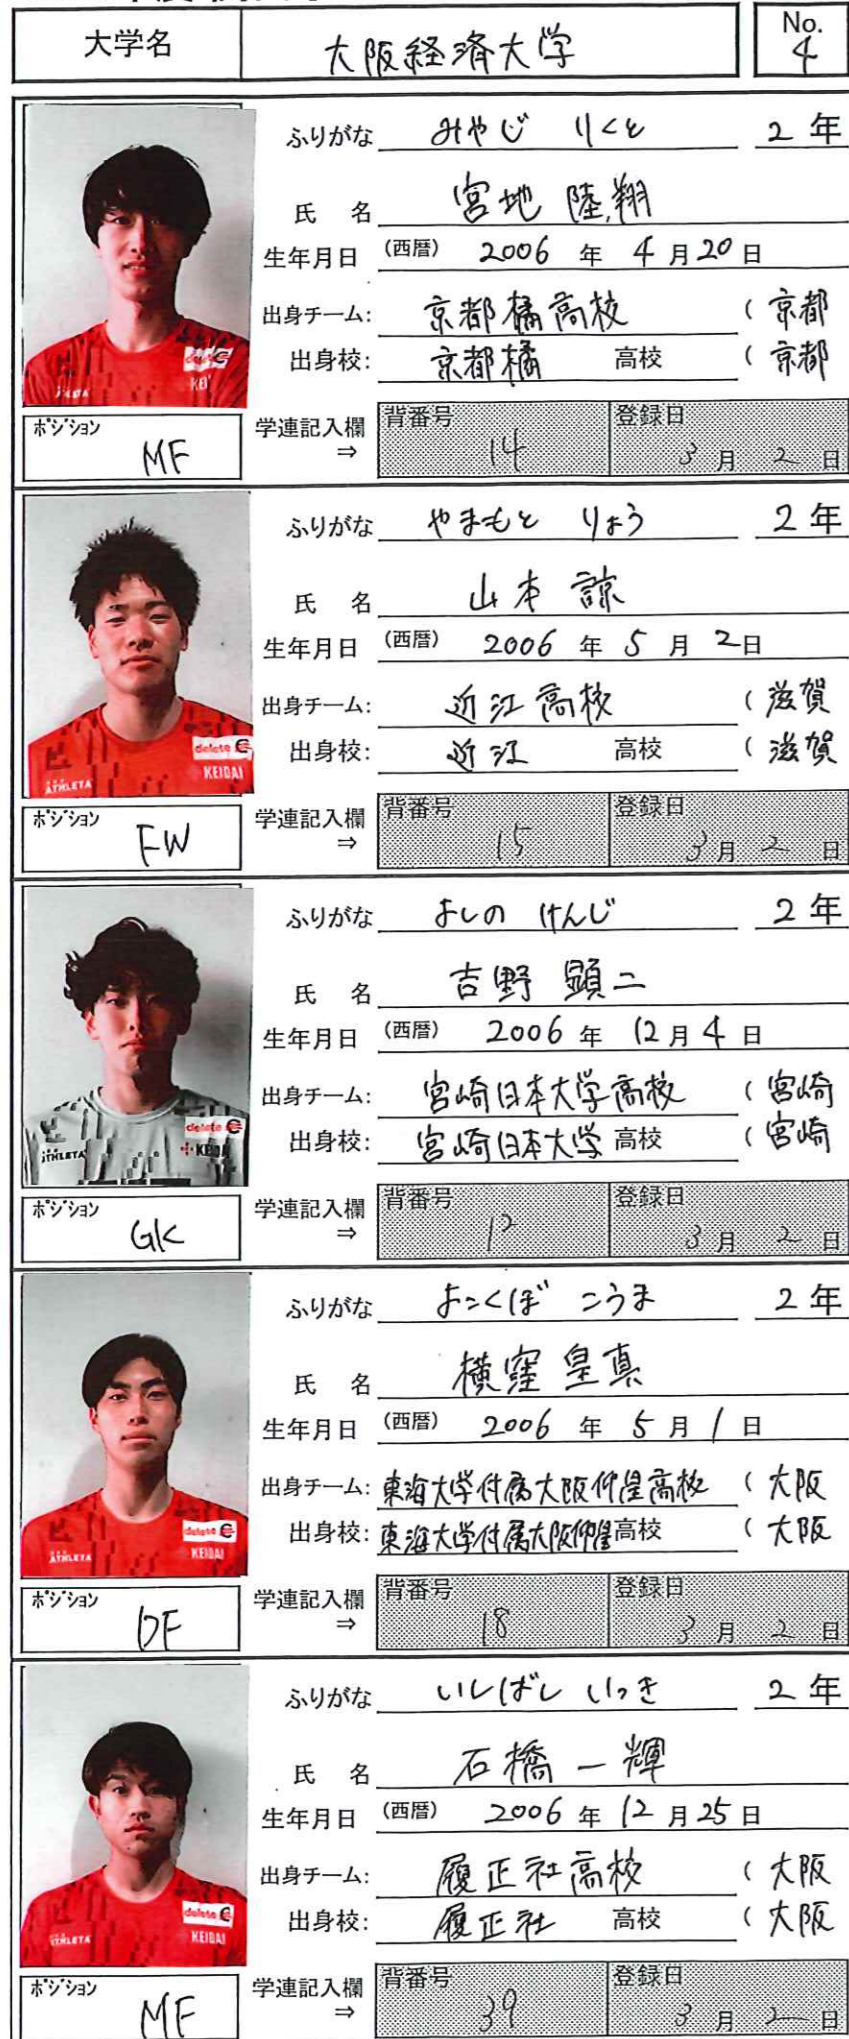 大学名 大阪経済大学 No. 4
ふりがな みやじ りくと 2年
氏名 宮地 陸翔
生年月日 (西暦) 2006 年 4 月 20 日
出身チーム: 京都橘高校 (京都
出身校: 京都橘 高校 (京都
ポジション MF 学連記入欄⇒ 背番号 14 登録日 3月 2日
delete C
ATHLETA
ふりがな やまもと りょう 2年
氏名 山本 諒
生年月日 (西暦) 2006 年 5 月 2日
出身チーム: 近江高校 (滋賀
出身校: 近江 高校 (滋賀
ポジション FW 学連記入欄⇒ 背番号 15 登録日 3月 2日
delete C
ATHLETA KEIDAI
ふりがな よしの けんじ 2年
氏名 吉野 顕二
生年月日 (西暦) 2006 年 12 月 4 日
出身チーム: 宮崎日本大学高校 (宮崎
出身校: 宮崎日本大学 高校 (宮崎
ポジション GK 学連記入欄⇒ 背番号 12 登録日 3月 2日
delete C
ATHLETA KEIDAI
ふりがな よこくぼ こうま 2年
氏名 横窪 皇真
生年月日 (西暦) 2006 年 5 月 1 日
出身チーム: 東海大学付属大阪仰星高校 (大阪
出身校: 東海大学付属大阪仰星高校 (大阪
ポジション DF 学連記入欄⇒ 背番号 18 登録日 3月 2日
delete C
ATHLETA KEIDAI
ふりがな いしばし いっき 2年
氏名 石橋 一輝
生年月日 (西暦) 2006 年 12 月 25 日
出身チーム: 履正社高校 (大阪
出身校: 履正社 高校 (大阪
ポジション MF 学連記入欄⇒ 背番号 39 登録日 3月 2日
delete C
ATHLETA KEIDAI